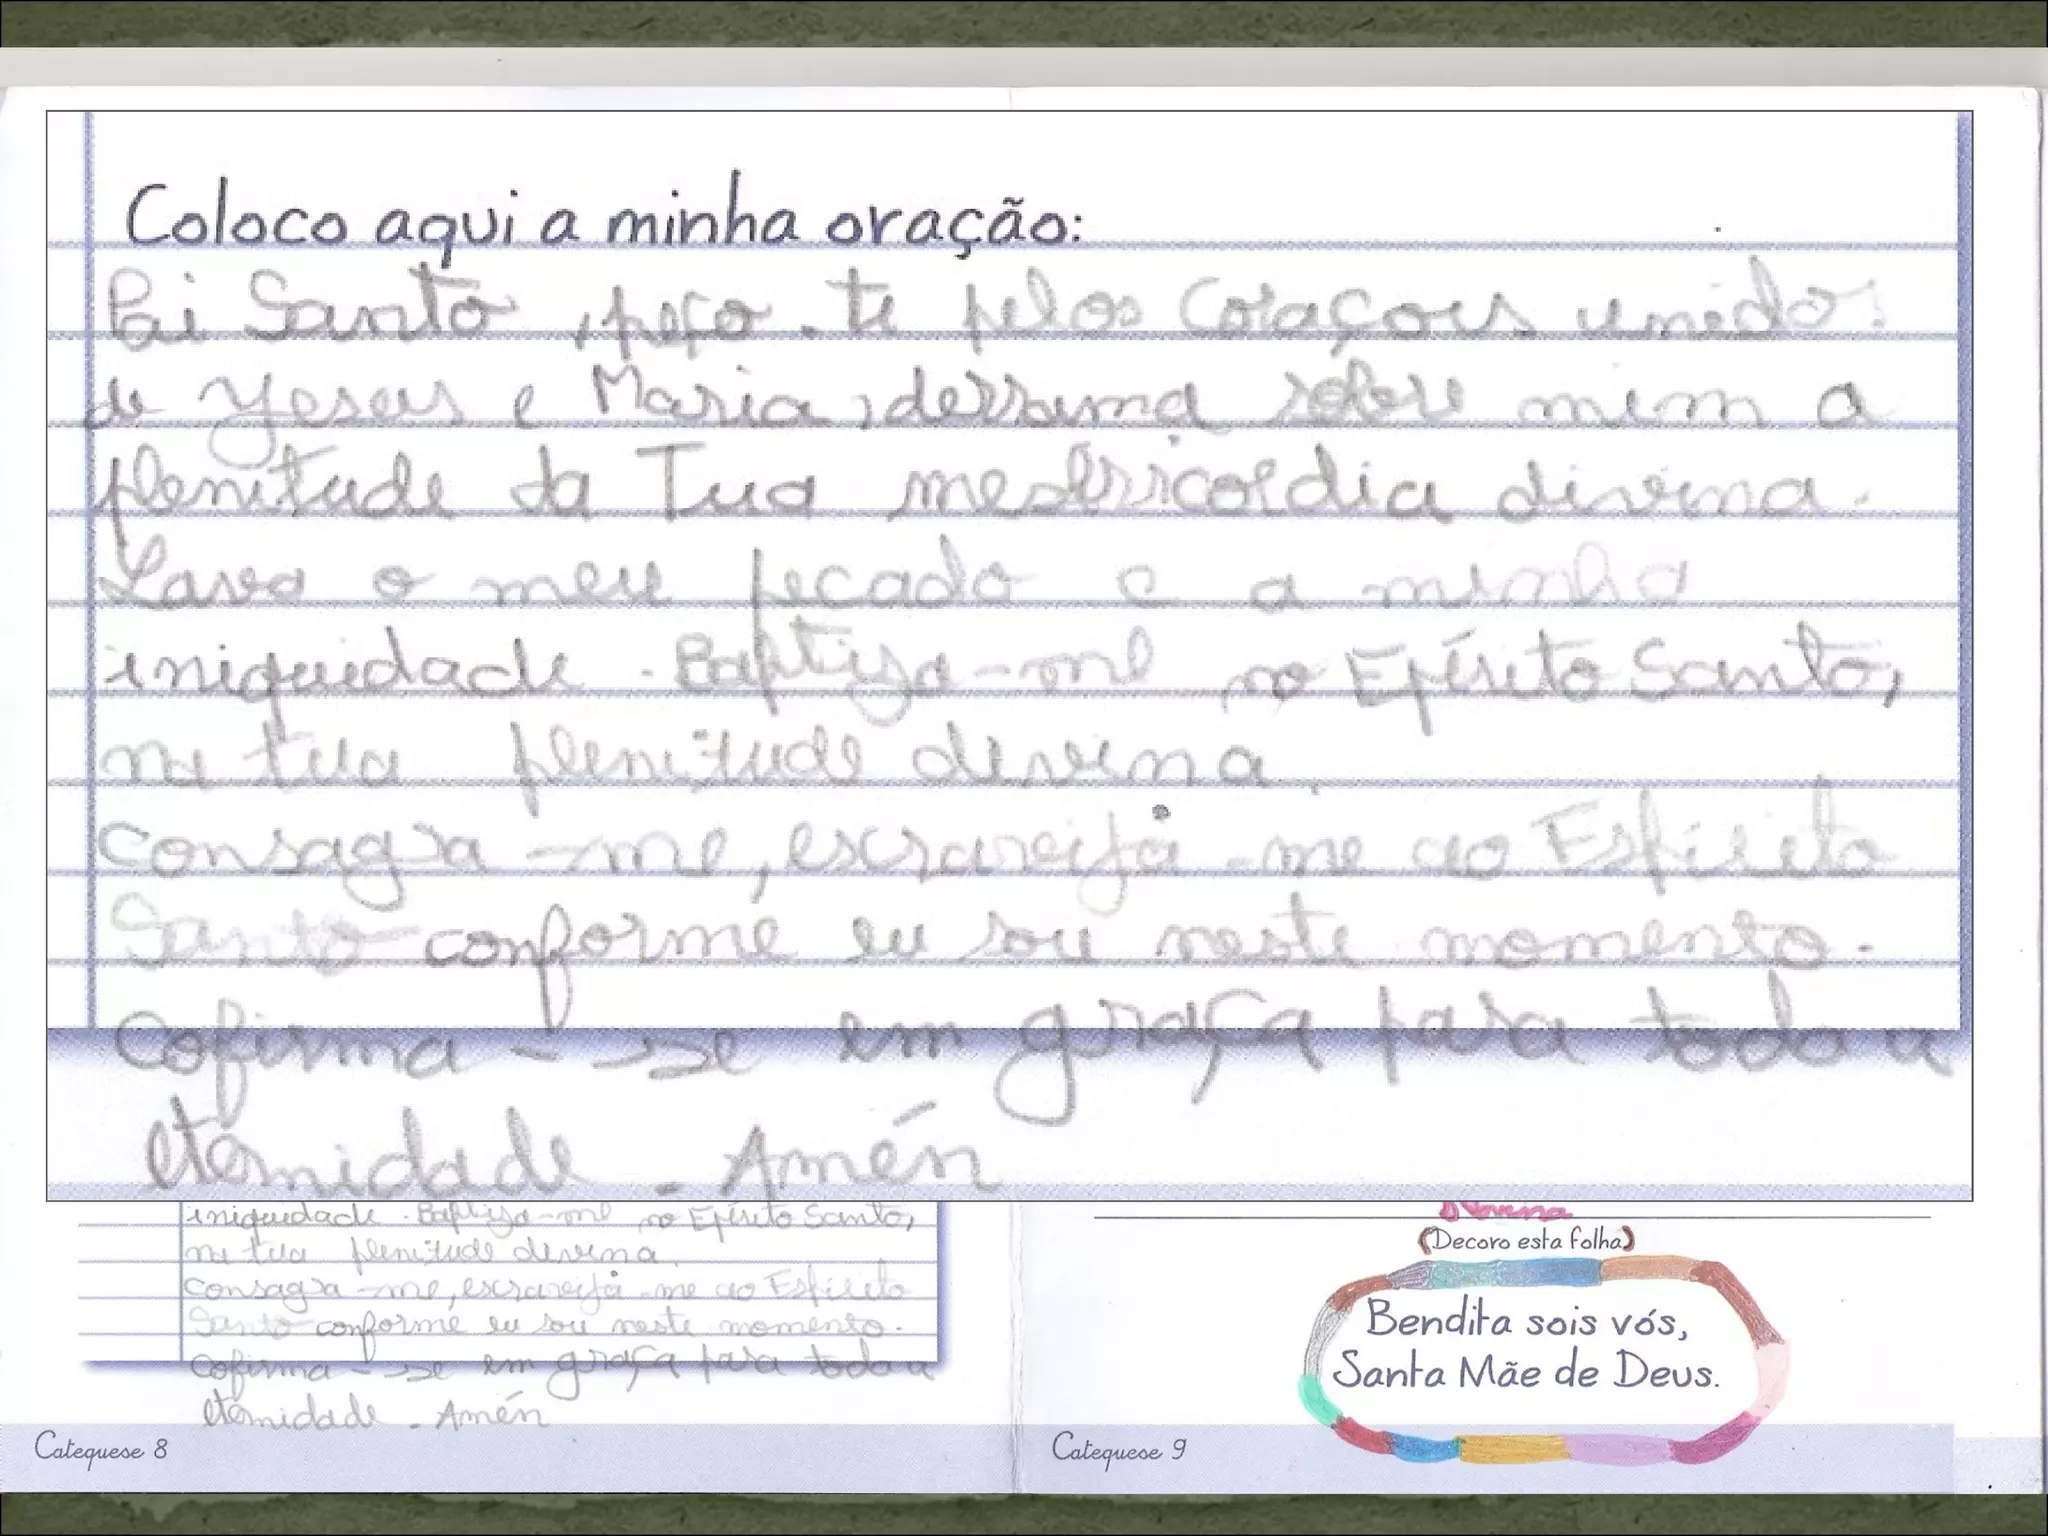 Coloco aqui a minha oração:
Pai Santo, peço-te pelos Coraçoẽs unidos
de Yesus e Maria, derrama sobre mim a
plenitude da Tua mesericordia divina.
Lava o meu pecado e a minha
iniquidade. Baptiza-me no Epírito Santo,
na tua plenitude divina.
Consagra-me, escraviza-me ao Espírito
Santo conforme eu sou neste momento.
Cofirma-se em graça para toda a
eternidade. Amén
iniquidade. Baptiza-me no Epírito Santo,
na tua plenitude divina.
Consagra-me, escraviza-me ao Espírito
Santo conforme eu sou neste momento.
Cofirma-se em graça para toda a
eternidade. Amén
Catequese 8
(Decoro esta folha)
Bendita sois vós,
Santa Mãe de Deus.
Catequese 9